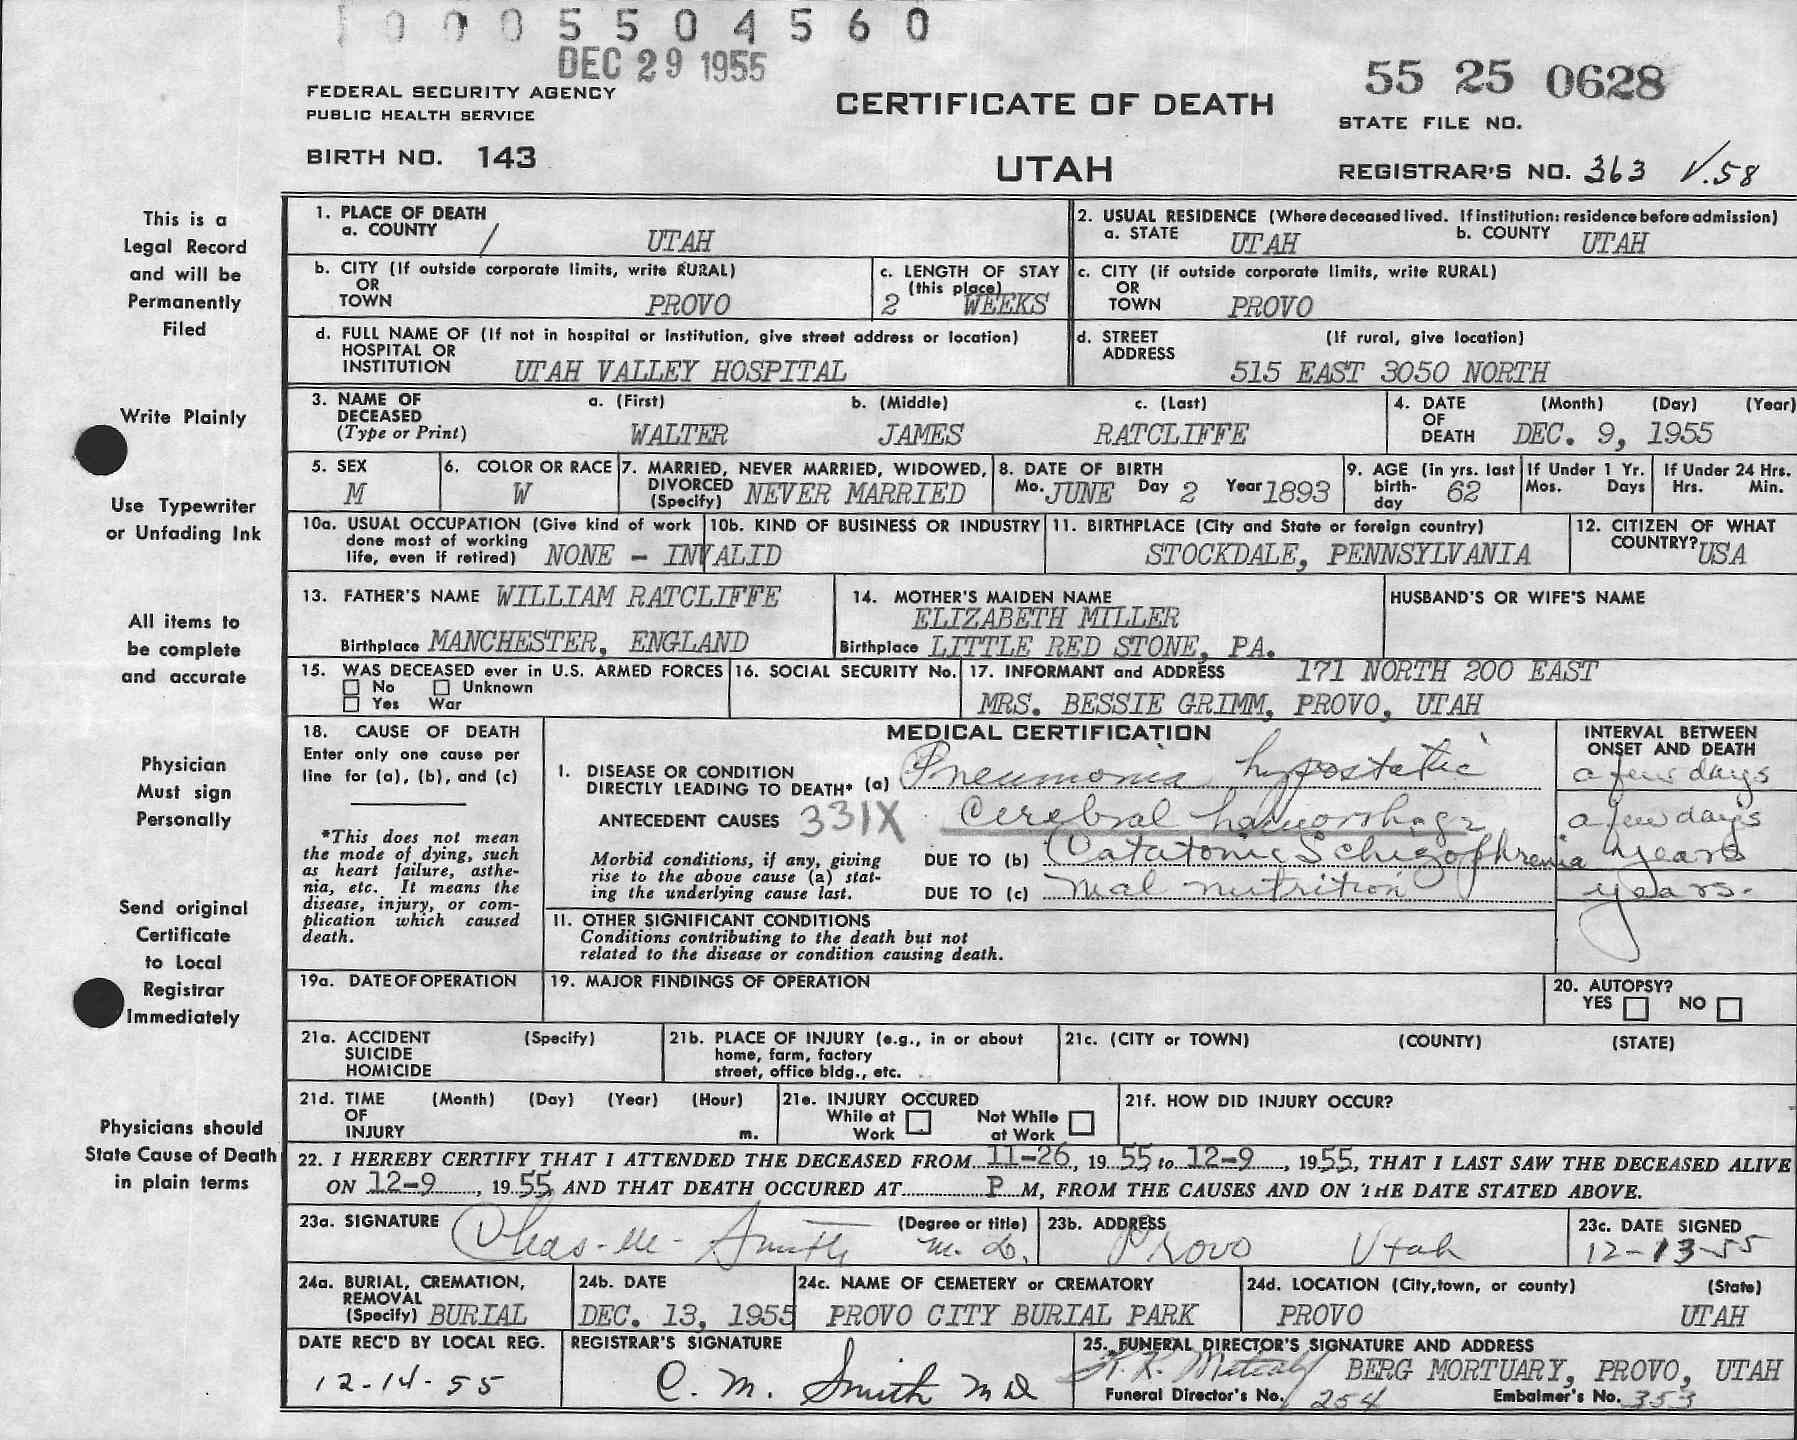 0 0 0 5 5 0 4 5 6 0
DEC 29 1955
55 25 0628
FEDERAL SECURITY AGENCY
PUBLIC HEALTH SERVICE
CERTIFICATE OF DEATH
STATE FILE NO.
BIRTH NO. 143
UTAH
REGISTRAR'S NO. 363 V.58
This is a
Legal Record
and will be
Permanently
Filed
Write Plainly
Use Typewriter
or Unfading Ink
All items to
be complete
and accurate
Physician
Must sign
Personally
Send original
Certificate
to Local
Registrar
Immediately
Physicians should
State Cause of Death
in plain terms
1. PLACE OF DEATH
a. COUNTY / UTAH
2. USUAL RESIDENCE (Where deceased lived. If institution: residence before admission)
a. STATE UTAH b. COUNTY UTAH
b. CITY (If outside corporate limits, write RURAL)
OR
TOWN PROVO
c. LENGTH OF STAY
(this place)
2 WEEKS
c. CITY (if outside corporate limits, write RURAL)
OR
TOWN PROVO
d. FULL NAME OF (If not in hospital or institution, give street address or location)
HOSPITAL OR
INSTITUTION UTAH VALLEY HOSPITAL
d. STREET (If rural, give location)
ADDRESS
515 EAST 3050 NORTH
3. NAME OF a. (First) b. (Middle) c. (Last)
DECEASED
(Type or Print) WALTER JAMES RATCLIFFE
4. DATE (Month) (Day) (Year)
OF
DEATH DEC. 9, 1955
5. SEX
M
6. COLOR OR RACE
W
7. MARRIED, NEVER MARRIED, WIDOWED,
DIVORCED
(Specify) NEVER MARRIED
8. DATE OF BIRTH
Mo. JUNE Day 2 Year 1893
9. AGE (in yrs. last
birth-
day 62
If Under 1 Yr.
Mos. Days
If Under 24 Hrs.
Hrs. Min.
10a. USUAL OCCUPATION (Give kind of work
done most of working
life, even if retired) NONE - INVALID
10b. KIND OF BUSINESS OR INDUSTRY
11. BIRTHPLACE (City and State or foreign country)
STOCKDALE, PENNSYLVANIA
12. CITIZEN OF WHAT
COUNTRY? USA
13. FATHER'S NAME WILLIAM RATCLIFFE
Birthplace MANCHESTER, ENGLAND
14. MOTHER'S MAIDEN NAME
ELIZABETH MILLER
Birthplace LITTLE RED STONE, PA.
HUSBAND'S OR WIFE'S NAME
15. WAS DECEASED ever in U.S. ARMED FORCES
No Unknown
Yes War
16. SOCIAL SECURITY No.
17. INFORMANT and ADDRESS 171 NORTH 200 EAST
MRS. BESSIE GRIMM, PROVO, UTAH
18. CAUSE OF DEATH
Enter only one cause per
line for (a), (b), and (c)
*This does not mean
the mode of dying, such
as heart failure, asthe-
nia, etc. It means the
disease, injury, or com-
plication which caused
death.
MEDICAL CERTIFICATION
INTERVAL BETWEEN
ONSET AND DEATH
I. DISEASE OR CONDITION
DIRECTLY LEADING TO DEATH* (a) Pneumonia hypostatic a few days
ANTECEDENT CAUSES 331X Cerebral hemorrhage a few days
Morbid conditions, if any, giving
rise to the above cause (a) stat-
ing the underlying cause last.
DUE TO (b) Catatonic Schizophrenia years
DUE TO (c) Mal nutrition years.
II. OTHER SIGNIFICANT CONDITIONS
Conditions contributing to the death but not
related to the disease or condition causing death.
19a. DATE OF OPERATION
19. MAJOR FINDINGS OF OPERATION
20. AUTOPSY?
YES NO
21a. ACCIDENT (Specify)
SUICIDE
HOMICIDE
21b. PLACE OF INJURY (e.g., in or about
home, farm, factory
street, office bldg., etc.
21c. (CITY or TOWN) (COUNTY) (STATE)
21d. TIME (Month) (Day) (Year) (Hour)
OF
INJURY m.
21e. INJURY OCCURED
While at Not While
Work at Work
21f. HOW DID INJURY OCCUR?
22. I HEREBY CERTIFY THAT I ATTENDED THE DECEASED FROM 11-26, 19 55 to 12-9, 1955, THAT I LAST SAW THE DECEASED ALIVE
ON 12-9, 19 55, AND THAT DEATH OCCURED AT P M, FROM THE CAUSES AND ON THE DATE STATED ABOVE.
23a. SIGNATURE (Degree or title)
Chas. M. Smith M. D.
23b. ADDRESS
Provo Utah
23c. DATE SIGNED
12-13-55
24a. BURIAL, CREMATION,
REMOVAL
(Specify) BURIAL
24b. DATE
DEC. 13, 1955
24c. NAME OF CEMETERY or CREMATORY
PROVO CITY BURIAL PARK
24d. LOCATION (City, town, or county) (State)
PROVO UTAH
DATE REC'D BY LOCAL REG.
12-14-55
REGISTRAR'S SIGNATURE
C. M. Smith MD
25. FUNERAL DIRECTOR'S SIGNATURE AND ADDRESS
Metcalf BERG MORTUARY, PROVO, UTAH
Funeral Director's No. 254 Embalmer's No. 353